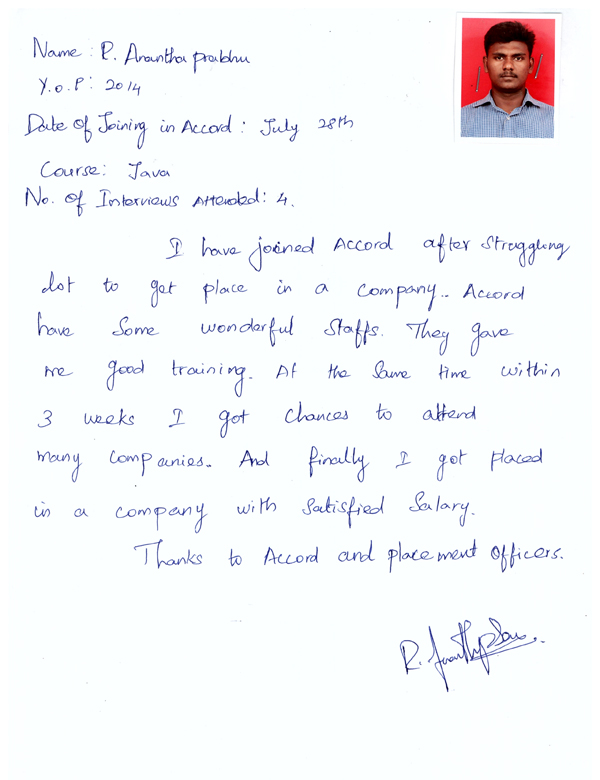 Name: R. Anantha prabhu
Y.O.P: 2014
Date of Joining in Accord: July 28th
Course: Java
No. of Interviews Attended: 4.
I have joined Accord after struggling
lot to get place in a company.. Accord
have some wonderful staffs. They gave
me good training. At the same time within
3 weeks I got chances to attend
many companies. And finally I got placed
in a company with satisfied salary.
Thanks to Accord and placement officers.